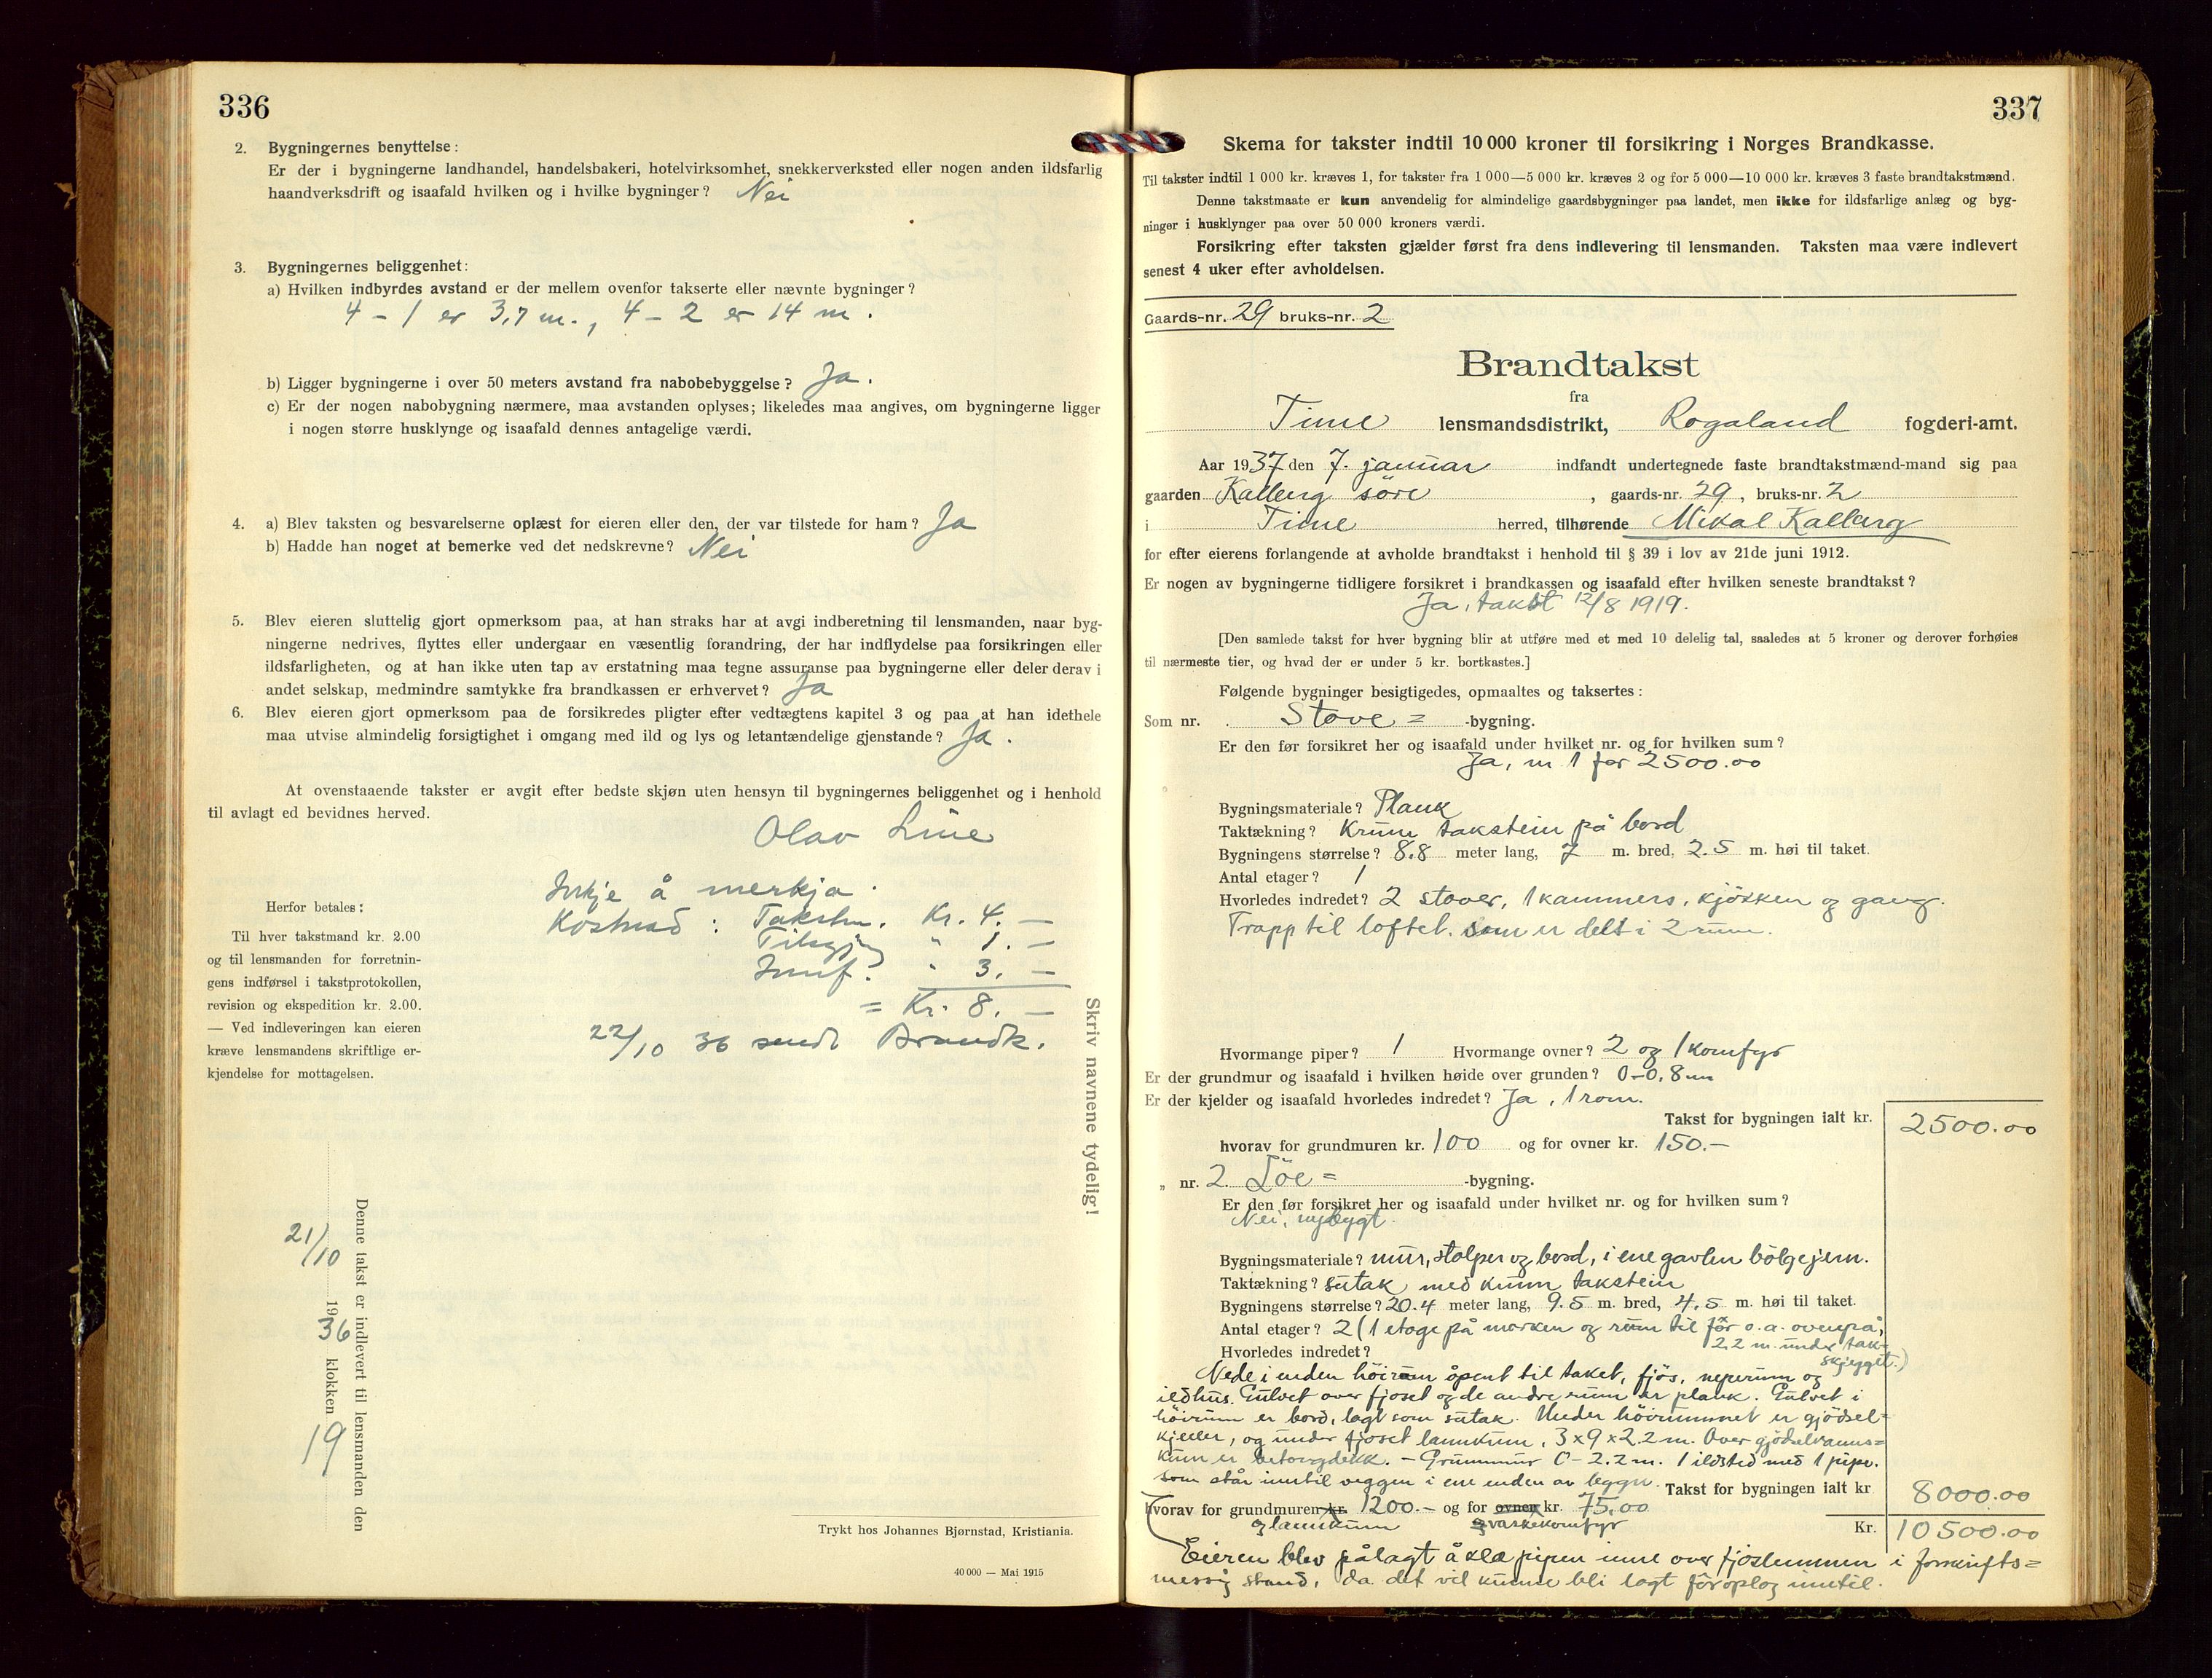 336
2. Bygningernes benyttelse:
Er der i bygningerne landhandel, handelsbakeri, hotelvirksomhet, snekkerverksted eller nogen anden ildsfarlig
haandverksdrift og isaafald hvilken og i hvilke bygninger? Nei
3. Bygningernes beliggenhet:
a) Hvilken indbyrdes avstand er der mellem ovenfor takserte eller nævnte bygninger?
4 - 1 er 3,7 m., 4 - 2 er 14 m.
b) Ligger bygningerne i over 50 meters avstand fra nabobebyggelse? Ja.
c) Er der nogen nabobygning nærmere, maa avstanden oplyses; likeledes maa angives, om bygningerne ligger
i nogen større husklynge og isaafald dennes antagelige værdi.
4. a) Blev taksten og besvarelserne oplæst for eieren eller den, der var tilstede for ham? Ja
b) Hadde han noget at bemerke ved det nedskrevne? Nei
5. Blev eieren sluttelig gjort opmerksom paa, at han straks har at avgi indberetning til lensmanden, naar byg-
ningerne nedrives, flyttes eller undergaar en væsentlig forandring, der har indflydelse paa forsikringen eller
ildsfarligheten, og at han ikke uten tap av erstatning maa tegne assuranse paa bygningerne eller deler derav i
andet selskap, medmindre samtykke fra brandkassen er erhvervet? Ja
6. Blev eieren gjort opmerksom paa de forsikredes pligter efter vedtægtens kapitel 3 og paa at han idethele
maa utvise almindelig forsigtighet i omgang med ild og lys og letantændelige gjenstande? Ja.
At ovenstaaende takster er avgit efter bedste skjøn uten hensyn til bygningernes beliggenhet og i henhold
til avlagt ed bevidnes herved.
Olav Line
Inkje å merkja.
Kostnad: Takstm. Kr. 4. —
" 1. —
Innf. " 3. —
= Kr. 8. —
22/10 36 sendt Brandk.
Herfor betales:
Til hver takstmand kr. 2.00
og til lensmanden for forretnin-
gens indførsel i takstprotokollen,
revision og ekspedition kr. 2.00.
— Ved indleveringen kan eieren
kræve lensmandens skriftlige er-
kjendelse for mottagelsen.
Skriv navnene tydelig!
Denne takst er indlevert til lensmanden den
21/10 1936 klokken 19
Trykt hos Johannes Bjørnstad, Kristiania.
40 000 — Mai 1915
337
Skema for takster indtil 10 000 kroner til forsikring i Norges Brandkasse.
Til takster indtil 1 000 kr. kræves 1, for takster fra 1 000—5 000 kr. kræves 2 og for 5 000—10 000 kr. kræves 3 faste brandtakstmænd.
Denne takstmaate er kun anvendelig for almindelige gaardsbygninger paa landet, men ikke for ildsfarlige anlæg og byg-
ninger i husklynger paa over 50 000 kroners værdi.
Forsikring efter taksten gjælder først fra dens indlevering til lensmanden. Taksten maa være indlevert
senest 4 uker efter avholdelsen.
Gaards-nr. 29 bruks-nr. 2
Brandtakst
fra
Time lensmandsdistrikt, Rogaland fogderi-amt.
Aar 1937 den 7. januar indfandt undertegnede faste brandtakstmænd-mand sig paa
gaarden Kalberg söre, gaards-nr. 29, bruks-nr. 2
i Time herred, tilhørende Mikal Kalberg
for efter eierens forlangende at avholde brandtakst i henhold til § 39 i lov av 21de juni 1912.
Er nogen av bygningerne tidligere forsikret i brandkassen og isaafald efter hvilken seneste brandtakst?
Ja, takst 12/8 1919.
[Den samlede takst for hver bygning blir at utføre med et med 10 delelig tal, saaledes at 5 kroner og derover forhøies
til nærmeste tier, og hvad der er under 5 kr. bortkastes.]
Følgende bygninger besigtigedes, opmaaltes og taksertes:
Som nr. Stove = -bygning.
Er den før forsikret her og isaafald under hvilket nr. og for hvilken sum?
Ja, nr 1 for 2500.00
Bygningsmateriale? Plank
Taktækning? Krum takstein på bord
Bygningens størrelse? 8.8 meter lang, 7 m. bred, 2.5 m. høi til taket.
Antal etager? 1
Hvorledes indredet? 2 stover, 1 kammers, kjökken og gang.
Trapp til loftet, som er delt i 2 rum.
Hvormange piper? 1 Hvormange ovner? 2 og 1 komfyr
Er der grundmur og isaafald i hvilken høide over grunden? 0-0,8 m
Er der kjelder og isaafald hvorledes indredet? Ja, 1 rom.
Takst for bygningen ialt kr. 2500.00
hvorav for grundmuren kr. 100 og for ovner kr. 150.-
„ nr. 2. Löe = -bygning.
Er den før forsikret her og isaafald under hvilket nr. og for hvilken sum?
Nei, nybygt.
Bygningsmateriale? mur, stolper og bord, i ene gavlen bölgejern.
Taktækning? sutak med krum takstein
Bygningens størrelse? 20.4 meter lang, 9.5 m. bred, 4.5 m. høi til taket.
Antal etager? 2 (1 etage på marken og rum til för o.a. ovenpå,
2.2 m. under tak-
skjegget.)
Hvorledes indredet?
Nede i enden höirum åpent til taket, fjös, neperum og
ildhus. Gulvet over fjöset og de andre rum er plank. Gulvet i
höirum er bord, lagt som sutak. Under höirummet er gjödsel=
kjeller, og under fjöset lannkum, 3 x 9 x 2.2 m. Over gjödselvanns=
kum er betongdekk. - Grunnmur 0-2.2 m. 1 ildsted med 1 pipe.
som står inntil veggen i ene enden av bygn. Takst for bygningen ialt kr 8000.00
hvorav for grundmuren kr. 1200.- og for ovner kr. 75.00
og lannkum og vaskekomfyr
Kr. 10500.00
Eieren blev pålagt å kle pipen inne over fjöslemmen i forskrifts=
messig stand, da det vil kunne bli lagt föroplag inntil.